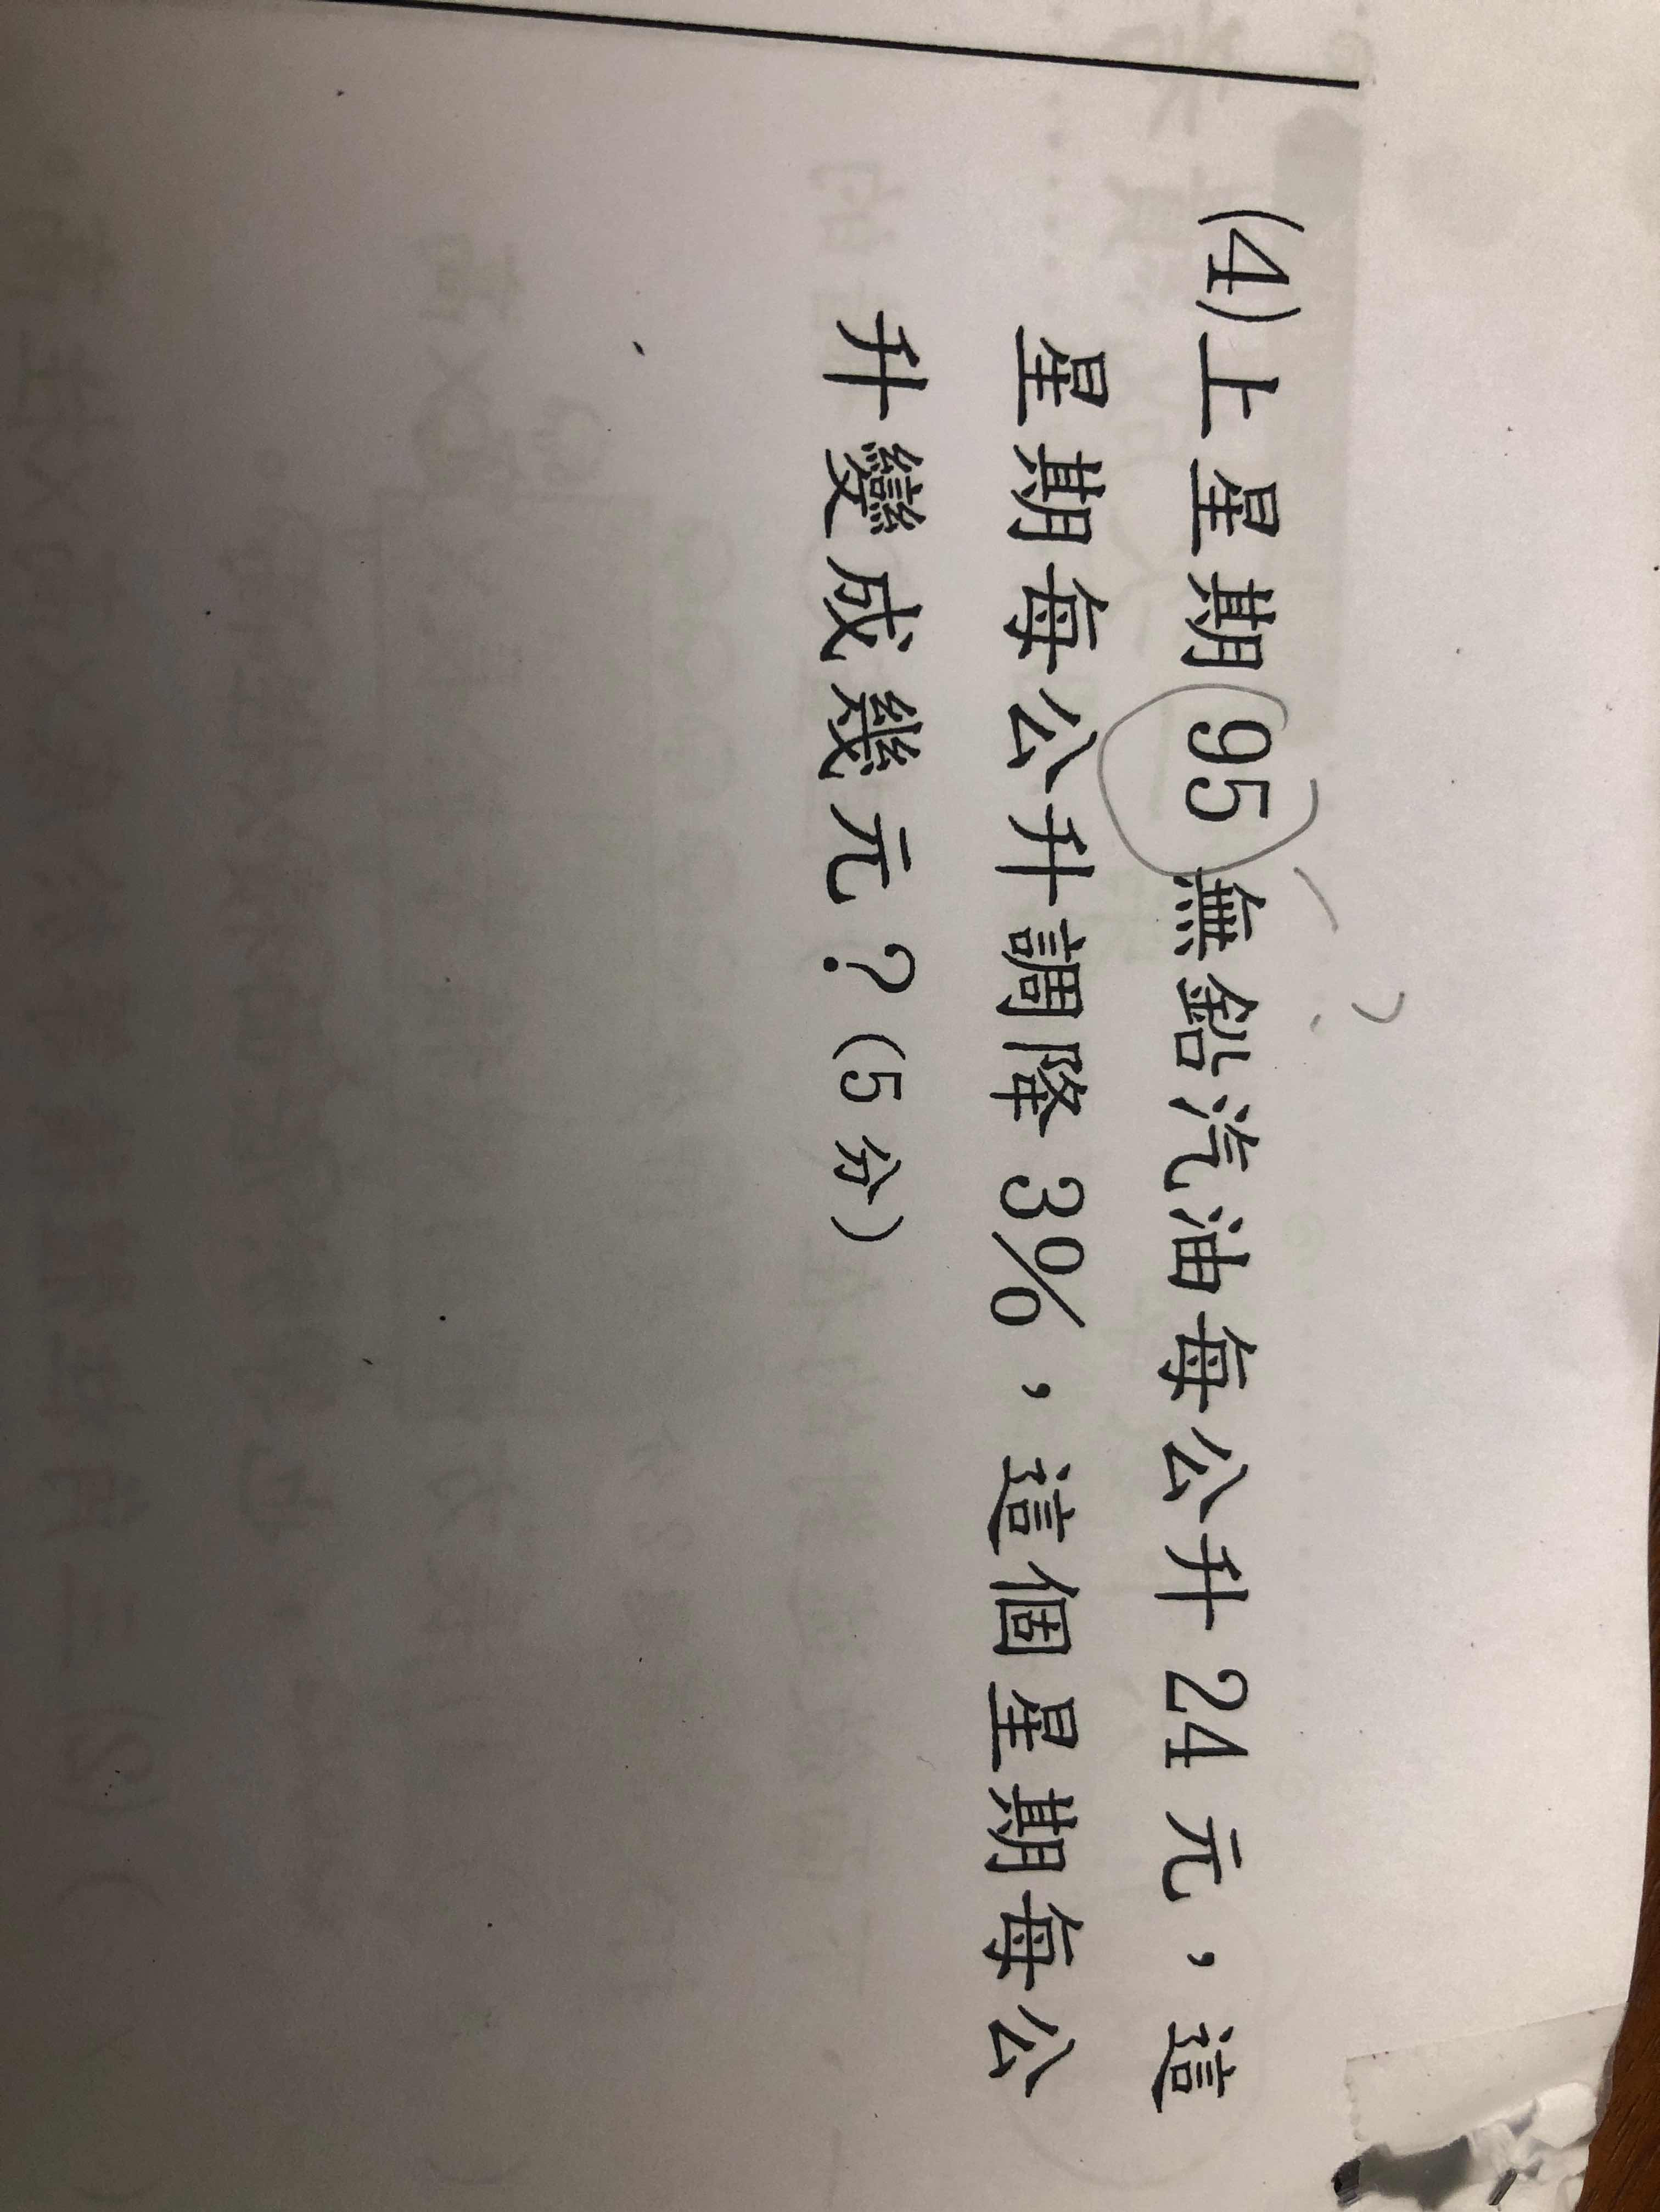 (4)上星期95無鉛汽油每公升24元，這
星期每公升調降3%，這個星期每公
升變成幾元？(5分)